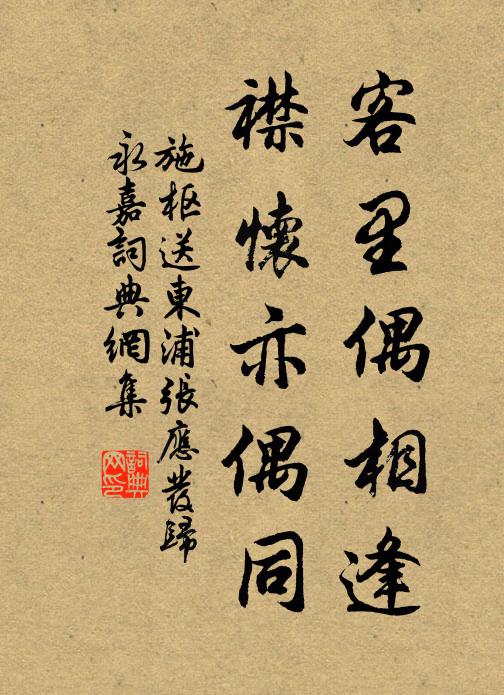 客里偶相逢
襟懷亦偶同
施枢送東浦張應發歸
永嘉詞典網集
詞典網印